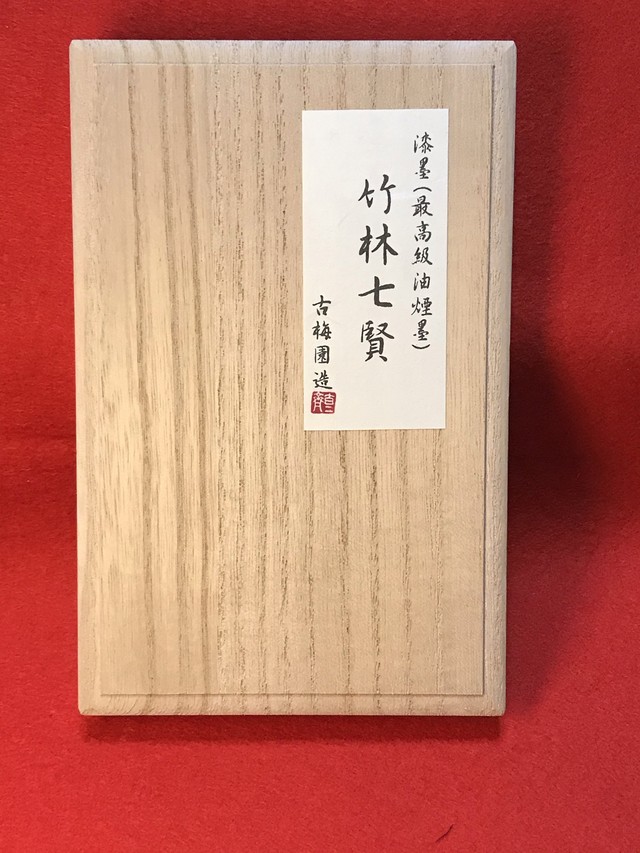 漆墨(最高級油煙墨)
竹林七賢
古梅園造